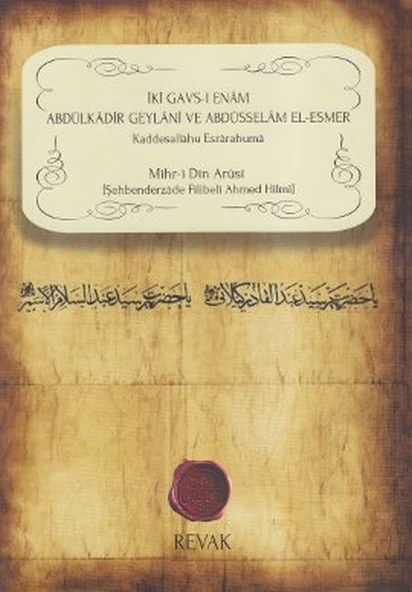 İKİ GAVS-I ENÂM
ABDÜLKÂDİR GEYLÂNÎ VE ABDÜSSELÂM EL-ESMER
Kaddesallâhu Esrârahumâ
Mihr-i Dîn Arûsî
[Şehbenderzâde Filibeli Ahmed Hilmi]
يا حضرت سيد عبدالقادر كيلاني
يا حضرت سيد عبدالسلام الاسمر
REVAK